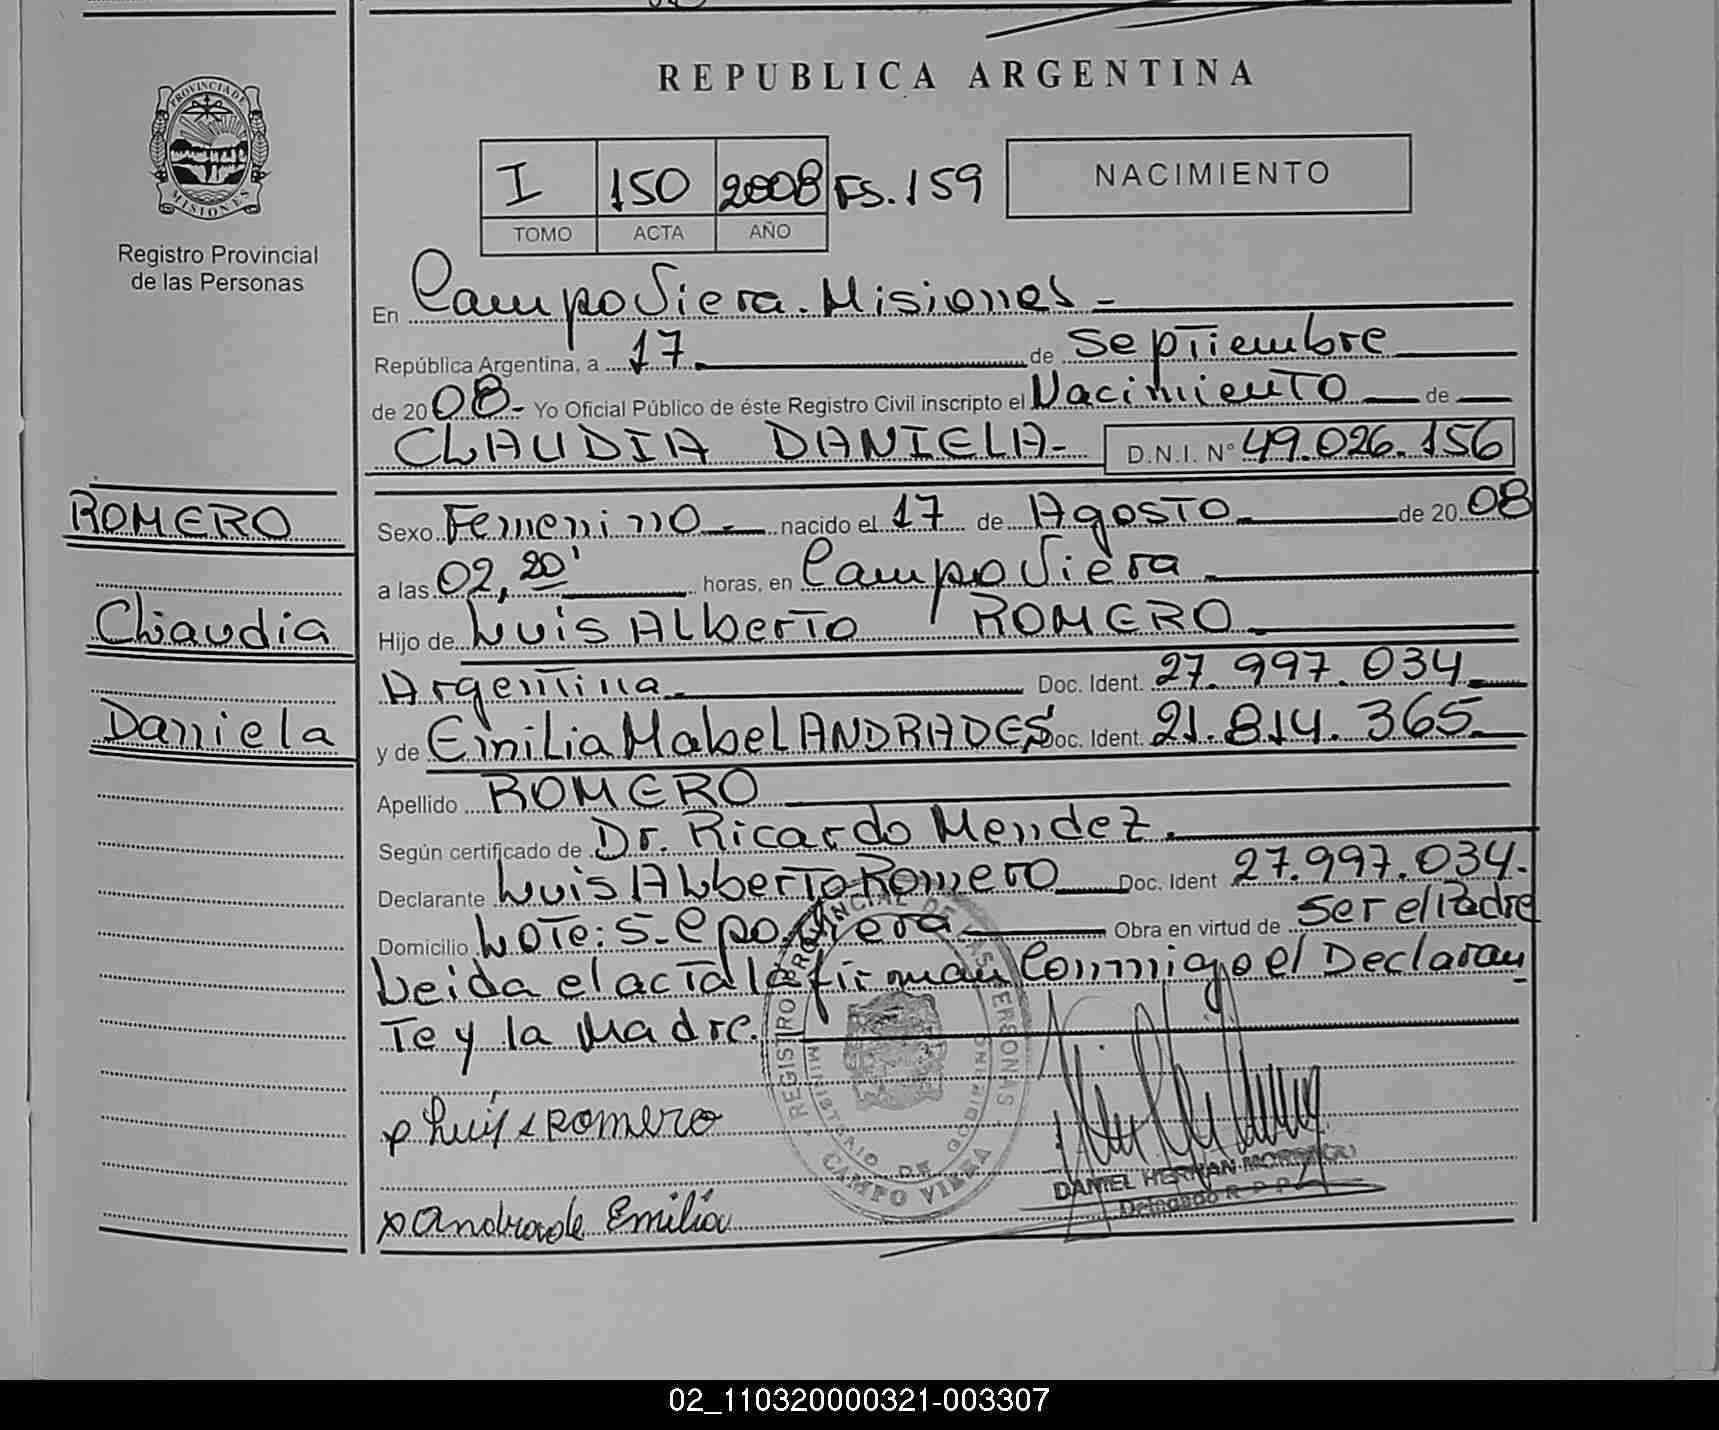 REPUBLICA ARGENTINA
PROVINCIA DE MISIONES
Registro Provincial
de las Personas
I 150 2008 FS. 159
TOMO ACTA AÑO
NACIMIENTO
En Campo Viera. Misiones
República Argentina, a 17 de Septiembre
de 2008 - Yo Oficial Público de éste Registro Civil inscripto el Nacimiento de
CLAUDIA DANIELA - D.N.I. N° 49.026.156
ROMERO
Claudia
Daniela
Sexo Femenino nacido el 17 de Agosto de 2008
a las 02,20' horas, en Campo Viera
Hijo de Luis Alberto ROMERO
Argentina Doc. Ident. 27.997.034
y de Emilia Mabel ANDRADES Doc. Ident. 21.814.365
Apellido ROMERO
Según certificado de Dr. Ricardo Mendez.
Declarante Luis Alberto Romero Doc. Ident 27.997.034.
Domicilio Lote: 5 - Cpo. Viera Obra en virtud de ser el Padre
Leida el acta la firman Conmigo el Declaran
te y la Madre.
REGISTRO PROVINCIAL DE LAS PERSONAS
MINISTERIO DE GOBIERNO
CAMPO VIERA
Luis Romero
Andrade Emilia
DANIEL HERNAN
Delegado R.P.P.
02_110320000321-003307